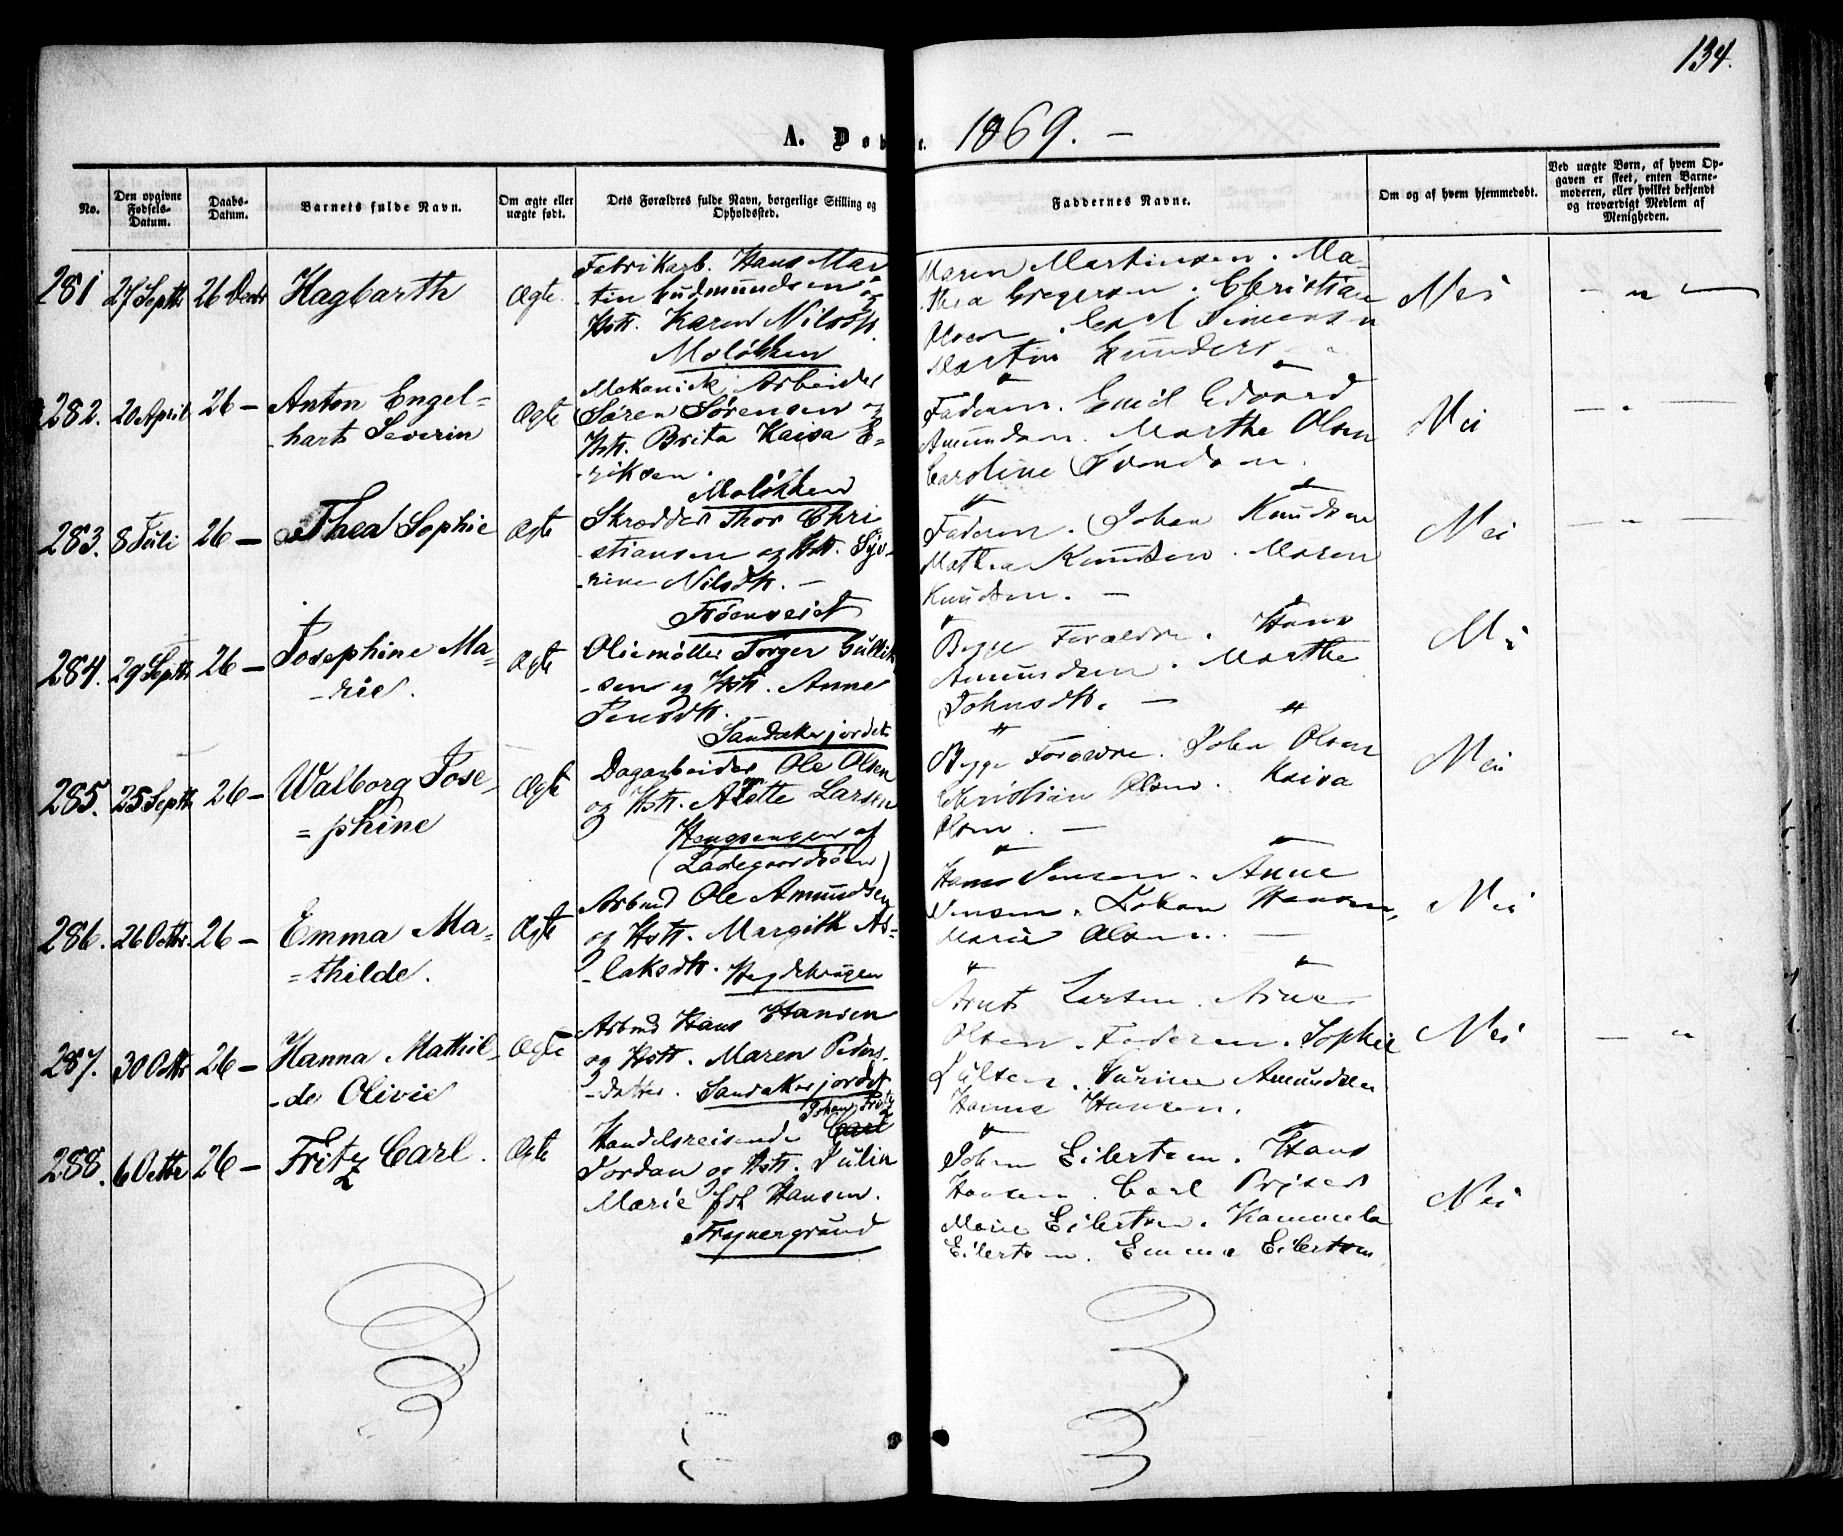 134.
A. Døbte. 1869. —
No.
Den opgivne Fødsels-Datum.
Daabs-Datum.
Barnets fulde Navn.
Om ægte eller uægte født.
Dets Forældres fulde Navn, borgerlige Stilling og Opholdssted.
Faddernes Navne.
Om og af hvem hjemmedøbt.
Ved uægte Børn, af hvem Opgaven er skeet, enten Barnemoderen, eller hvilket bekjendt og troværdigt Medlem af Menigheden.
281 27 Septb 26 Decbr Hagbarth Ægte.
Fabrikarb. Hans Mar
tin Gudmundsen og
Hstr. Karen Nilsdtr.
Moløkken
Maren Martinsen. Ma-
thea Gregersen. Christian
Olsen. Carl Simensen
Martin Gunders
Nei — „ —
282. 20 April 26 — Anton Engel=
-hart Severin Ægte
Mekanisk Arbeider
Søren Sørensen og
Hstr. Brita Kaisa E-
-riksen.
Moløkken
Faderen. Emil Edvard
Amundsen. Marthe Olsen
Caroline Svendsen.
Nei — „ —
283. 8 Juli 26 — Thea Sophie Ægte
Skrædder Thor Chri
-stiansen og Hstr. Sýv-
-rine Nilsdtr. —
Frøenveiet
Faderen. Johan Knudsen
Mathea Knudsen. Maren
Knudsen. —
Nei — „ —
284. 29 Septb 26 — Josephine Ma-
-rie. Ægte
Oliemøller Torger Gullik
-sen og Hstr. Anne
Jensdtr.
Sandakerjordet
Begge Forældre. Hans
Amundsen. Marthe
Johnsdtr. —
Nei
285. 25 Septb 26 — Walborg Jose=
=phine Ægte
Dagarbeider Ole Olsen
og Hstr. Anette Larsen
Hengsengen af
(Ladegaardsøen)
Begge Forældre. Johan Olsen
Christian Olsen. Kaisa
Olsen. —
Nei
286. 26 Octbr. 26 — Emma Ma=
=thilde. Ægte
Arbmd Ole Amundsen
og Hstr. Margith As=
-laksdtr. Hegdehaugen
Hans Jensen. Anne
Jensen. Johan Hansen,
Marie Olsen. —
Nei
287. 30 Octbr 26 — Hanna Mathil-
-de Olivie Ægte
Arbmd Hans Hansen
og Hstr. Maren Peders-
-datter. Sandakerjordet
Arnt Larsen. Arne
Olsen. Faderen. Sophie
Hanne Hansen.
Nei — „
288. 6 Octbr 26 — Fritz Carl. Ægte
Johan Fritz
Handelsreisende Carl
Jordan og Hstr. Julin
Marie fdt Hansen.
Frognergrund
Johan Eilertsen. Hans
Hansen. Carl
Marie Eilertsen. Kammila
Eilertsen. Emma Eilertsen
Nei